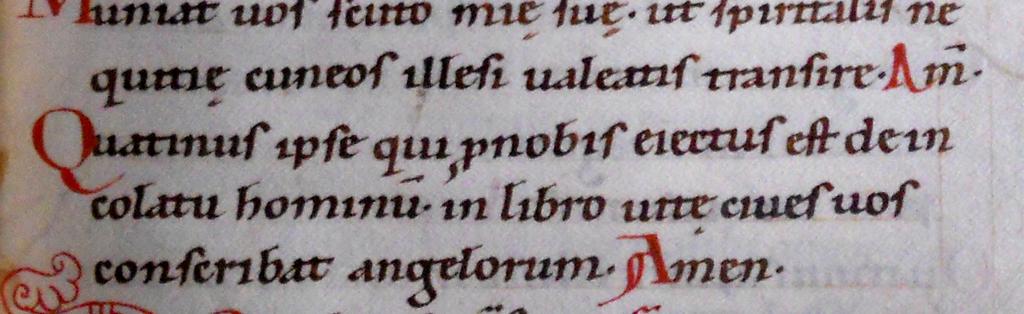 Muniat uos scuto mię suę. ut spiritalis ne
quitię cuneos illesi ualeatis transire. Am̄.
Quatinus ipse qui ꝓ nobis eiectus est de in
colatu hominū. in libro uitę ciues uos
conscribat angelorum. Amen.